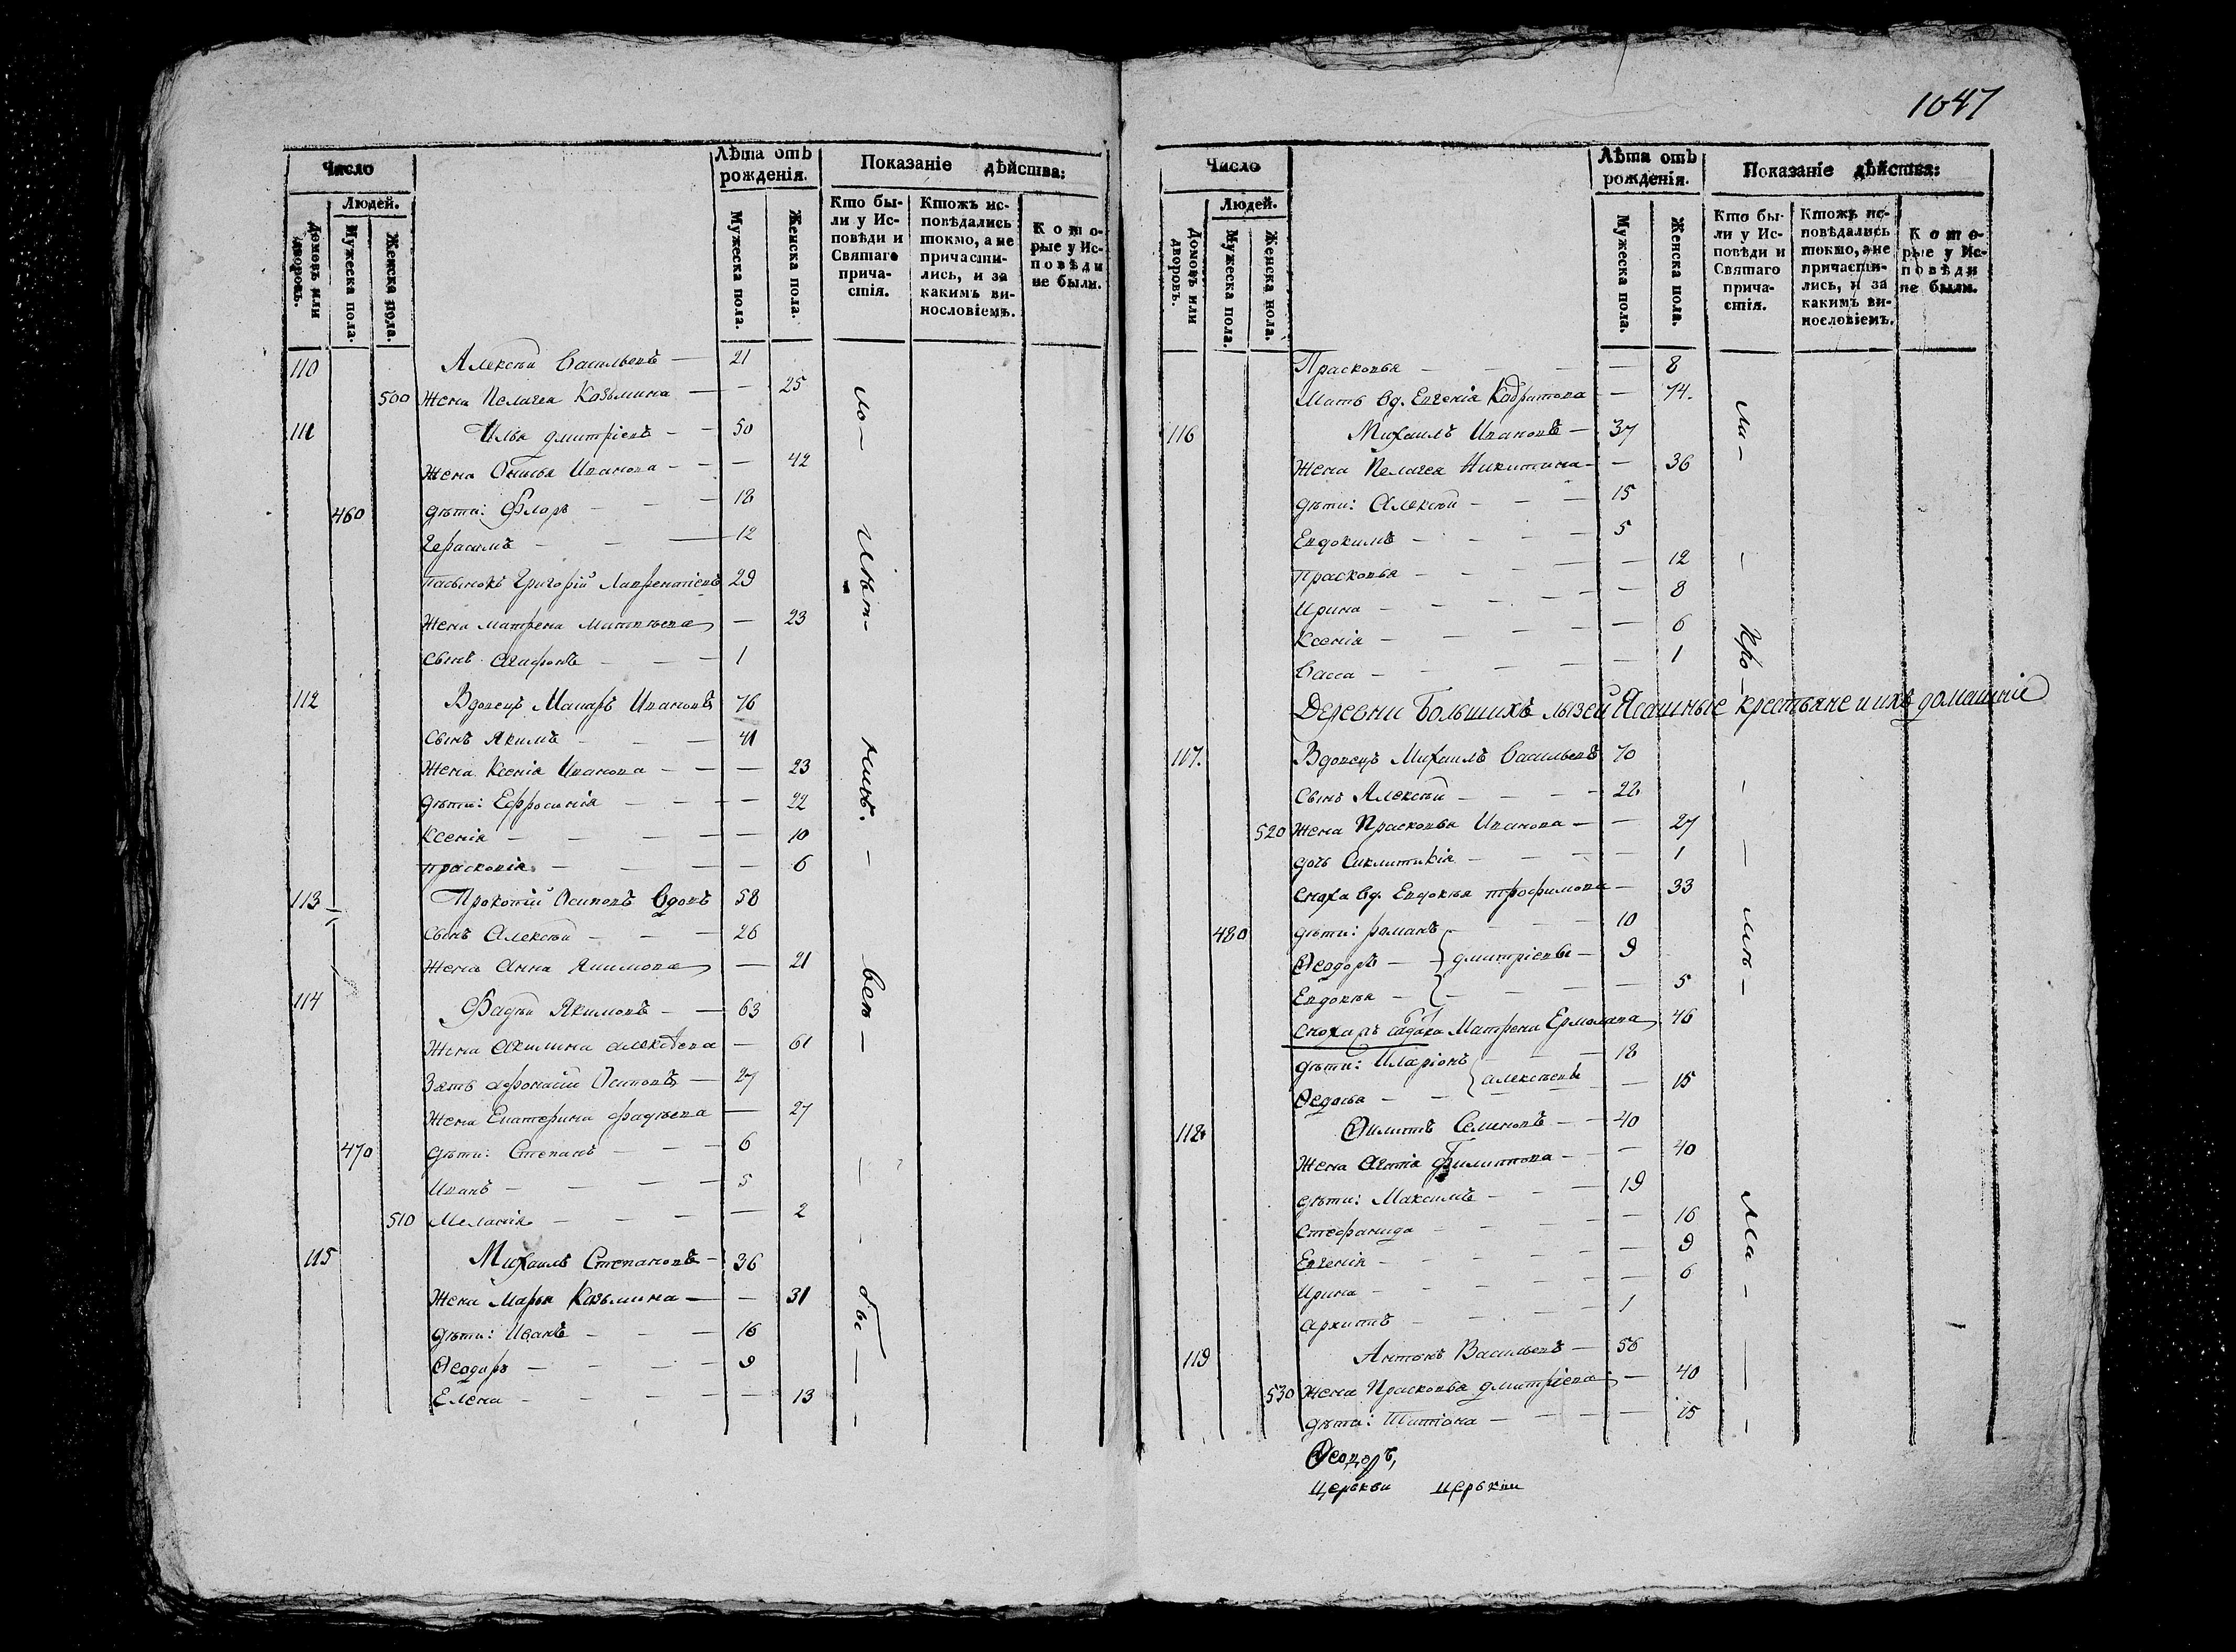 1047
Число
Лѣта отъ рожденія.
Показаніе дѣйства:
Людей.
Домовъ или дворовъ.
Мужеска пола.
Женска пола.
Мужеска пола.
Женска пола.
Кто были у Исповѣди и Святаго причастія.
Ктожъ исповѣдались токмо, а не причастились, и за какимъ винословіемъ.
Которые у Исповѣди не были.
110 Алексѣй Васильевъ — 21
500 Жена Пелагея Козьмина — — 25
111 Илья Дмитріевъ — — 50
Жена Ѳеклья Иванова — — — 42
460 Дѣти: Флоръ — — 18
Герасимъ — — — 12
Пасынокъ Григорій Лаврентіевъ 29
Жена Матрена Матвѣева — 23
Сынъ Агафонъ — — — 1
112 Вдовецъ Макаръ Ивановъ 76
Сынъ Якимъ — — — 41
Жена Ксенія Иванова — — — 23
Дѣти: Ефросинія — — — — 22
Ксенія — — — — — 10
Прасковія — — — — 6
113 Прокопій Осиповъ Вдовъ 58
Сынъ Алексѣй — — — 26
Жена Анна Якимова — 21
114 Фадѣй Якимовъ — — 63
Жена Акилина Алексѣева — 61
Зять Афонасій Осиповъ — 27
Жена Екатерина Фадѣева — 27
470 Дѣти: Степанъ — — — 6
Иванъ — — — — 5
510 Меланія — — — — 2
115 Михаилъ Степановъ — 36
Жена Марья Козьмина — — 31
Дѣти: Иванъ — — — 16
Ѳеодоръ — — — — 9
Елена — — — — — 13
Число
Лѣта отъ рожденія.
Показаніе дѣйства:
Людей.
Домовъ или дворовъ.
Мужеска пола.
Женска пола.
Мужеска пола.
Женска пола.
Кто были у Исповѣди и Святаго причастія.
Ктожъ исповѣдались токмо, а не причастились, и за какимъ винословіемъ.
Которые у Исповѣди не были.
Прасковья — — — — 8
Мать вд. Евгенія Кодратова — 74.
116 Михаилъ Ивановъ — 37
Жена Пелагея Никитина — — 36
Дѣти: Алексѣй — — — 15
Евдокимъ — — — — 5
Прасковья — — — — — 12
Ирина — — — — — 8
Ксенія — — — — — 6
Васса — — — — — 1
Деревни Большихъ лызей Ясашные крестьяне и ихъ домашніе
117. Вдовецъ Михаилъ Васильевъ 70
Сынъ Алексѣй — — — — 22
520 Жена Прасковья Иванова — — 27
дочь Сиклитикія — — — — 1
Сноха вд. Евдокѣя Трофимова — 33
480 дѣти: Романъ — — — 10
Ѳеодоръ — — Дмитріевы — 9
Евдокѣя — — — — — 5
Матрена Ермолаева 46
дѣти: Иларіонъ — — — 18
Алексѣевы — 15
Ѳедосья — —
118 Ѳилипъ Семеновъ — — 40
Жена Агапія Филиппова — — 40
дѣти: Максимъ — — — 19
Стефанида — — — — 16
Евгенія — — — — — 9
Ирина — — — — — 6
Архипъ — — — — 1
119 Антонъ Васильевъ — 56
530 Жена Прасковья Дмитріева — 40
дѣти: Татіана — — — — 15
Ѳеодоръ,
Церькви Церькви